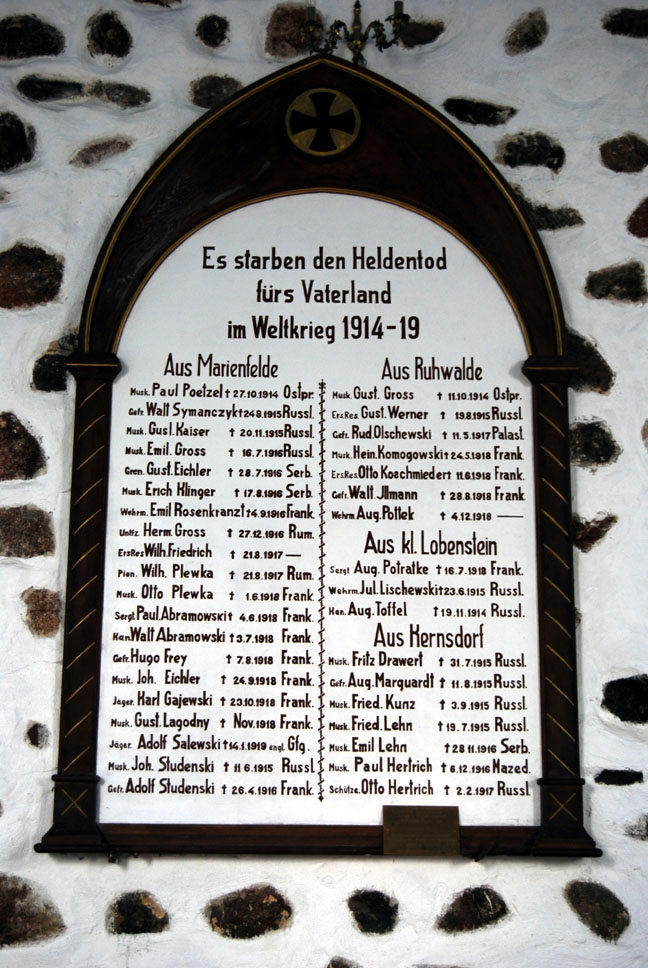 Es starben den Heldentod
fürs Vaterland
im Weltkrieg 1914-19
Aus Marienfelde
Musk. Paul Poetzel † 27.10.1914 Ostpr.
Gefr. Walt Symanczyk † 24.8.1915 Russl.
Musk. Gust. Kaiser † 20.11.1915 Russl.
Musk. Emil. Gross † 16.7.1916 Russl.
Gren. Gust. Eichler † 28.7.1916 Serb.
Musk. Erich Klinger † 17.8.1916 Serb.
Wehrm. Emil Rosenkranz † 14.9.1916 Frank.
Untfz. Herm. Gross † 27.12.1916 Rum.
ErsRes Wilh. Friedrich † 21.8.1917 —
Pion. Wilh. Plewka † 21.8.1917 Rum.
Musk. Otto Plewka † 1.6.1918 Frank.
Sergt. Paul. Abramowski † 4.6.1918 Frank.
Kan. Walt Abramowski † 3.7.1918 Frank.
Gefr. Hugo Frey † 7.8.1918 Frank.
Musk. Joh. Eichler † 24.9.1918 Frank.
Jäger. Karl Gajewski † 23.10.1918 Frank.
Musk. Gust. Lagodny † Nov. 1918 Frank.
Jäger. Adolf Salewski † 14.1.1919 engl. Gfg.
Musk. Joh. Studenski † 11.6.1915 Russl.
Gefr. Adolf Studenski † 26.4.1916 Frank.
Aus Ruhwalde
Musk. Gust. Gross † 11.10.1914 Ostpr.
ErsRes. Gust. Werner † 19.8.1915 Russl.
Gefr. Rud. Olschewski † 11.5.1917 Paläst.
Musk. Hein. Komogowski † 24.5.1918 Frank.
ErsRes. Otto Koschmieder † 11.6.1918 Frank.
Gefr. Walt. Jllmann † 28.8.1918 Frank.
Wehrm. Aug. Pottek † 4.12.1918 —
Aus kl. Lobenstein
Sergt Aug. Potratke † 16.7.1918 Frank.
Wehrm. Jul. Lischewski † 23.6.1915 Russl.
Kan. Aug. Toffel † 19.11.1914 Russl.
Aus Kernsdorf
Musk. Fritz Drawert † 31.7.1915 Russl.
Gefr. Aug. Marquardt † 11.8.1915 Russl.
Musk. Fried. Kunz † 3.9.1915 Russl.
Musk. Fried. Lehn † 19.7.1915 Russl.
Musk. Emil Lehn † 28.11.1916 Serb.
Musk. Paul Hertrich † 6.12.1916 Mazed.
Schütze. Otto Hertrich † 2.2.1917 Russl.